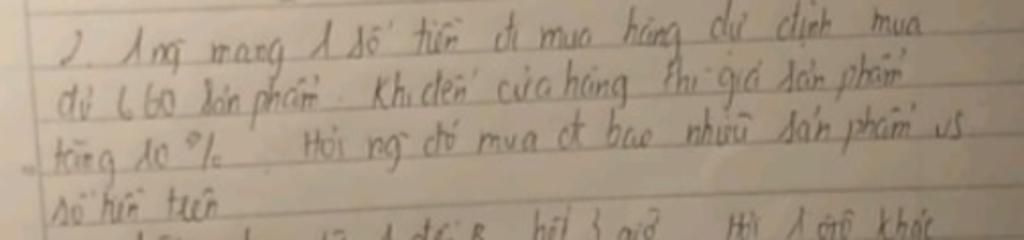 2. 1 ng mang 1 số tiền đi mua hàng dự định mua
đủ 660 sản phẩm. Khi đến cửa hàng thì giá sản phẩm
tăng 10%. Hỏi ng đó mua đt bao nhiêu sản phẩm vs
số tiền trên
hết 3 giờ Hỏi 1 ôtô khác